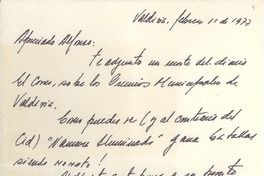 Valdivia, febrero 1º de 1977
Apreciado Alfonso:
Te adjunto un recorte del diario
El Correo, sobre los Premios Municipales de
Valdivia.
Como puedes ver (y al contrario del
Cid) "Namuru Iluminado" gana batallas
siendo nonato!